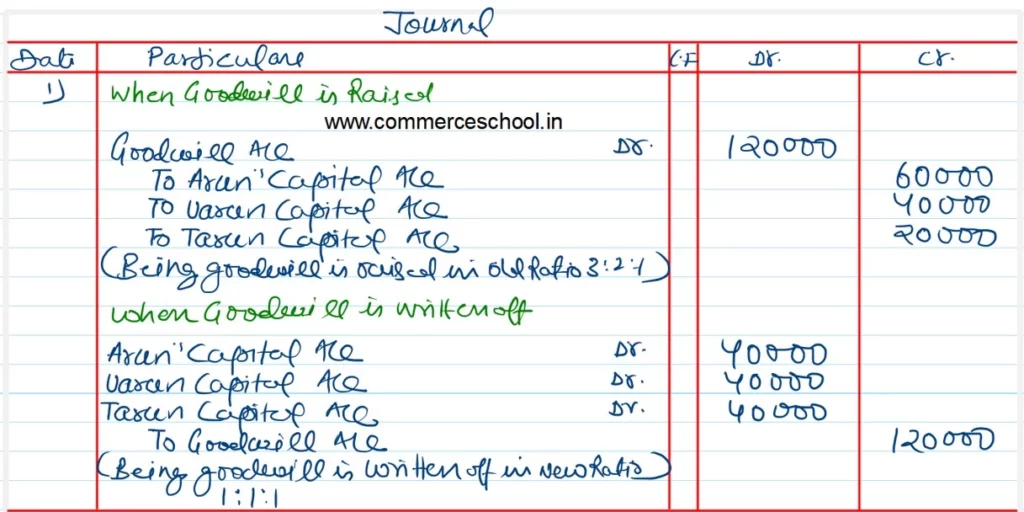 Journal
Date Particulars L.F Dr. Cr.
1) When Goodwill is Raised
www.commerceschool.in
Goodwill A/c Dr. 120000
To Arun's Capital A/c 60000
To Varun Capital A/c 40000
To Tarun Capital A/c 20000
(Being goodwill is raised in old Ratio 3:2:1)
When Goodwill is written off
Arun's Capital A/c Dr. 40000
Varun Capital A/c Dr. 40000
Tarun Capital A/c Dr. 40000
To Goodwill A/c 120000
(Being goodwill is written off in New Ratio
1:1:1